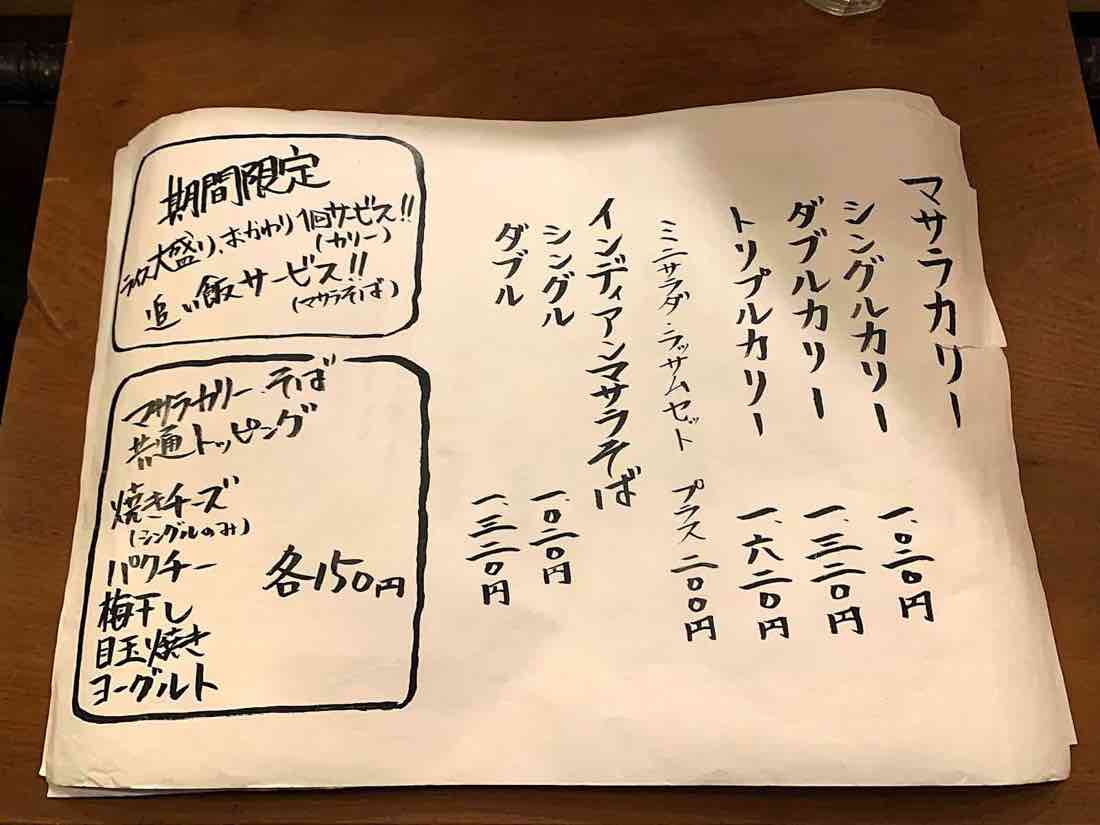 マサラカリー
シングルカリー 一、〇二〇円
ダブルカリー 一、三二〇円
トリプルカリー 一、六二〇円
ミニサラダ・ラッサムセット プラス二〇〇円
インディアンマサラそば
シングル 一、〇二〇円
ダブル 一、三二〇円
期間限定
ライス大盛り、おかわり1回サービス!!
(カリー)
追い飯サービス!!
(マサラそば)
マサラカリー・そば
共通トッピング
焼きチーズ
(シングルのみ)
パクチー
各150円
梅干し
目玉焼き
ヨーグルト